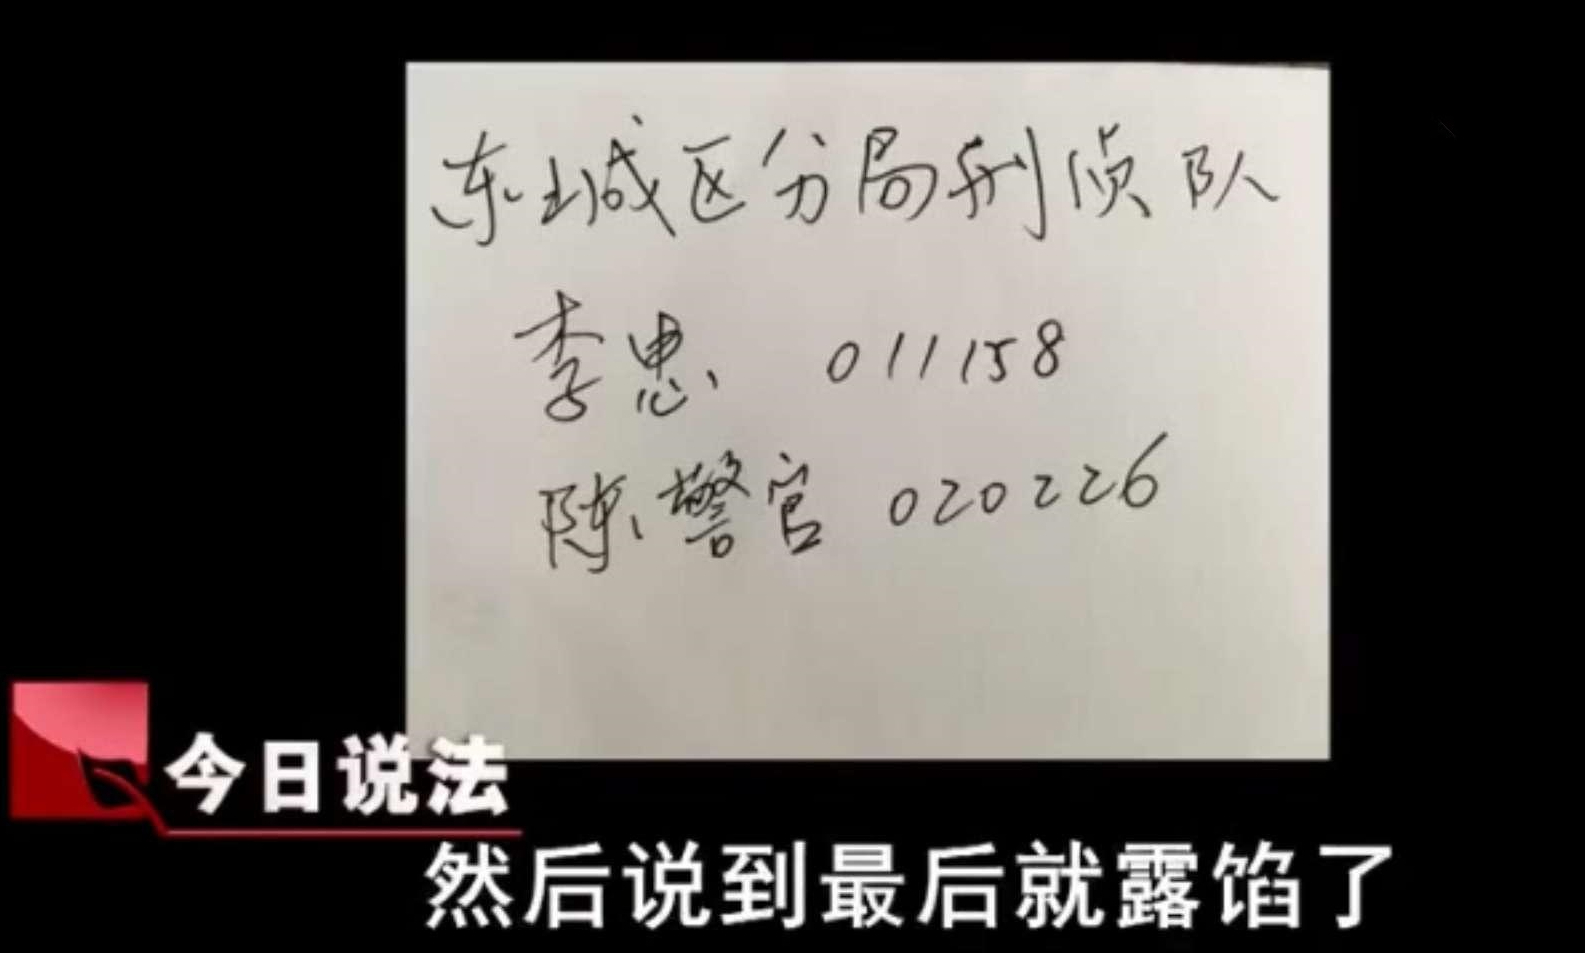 东城区分局刑侦队
李忠 011158
陈警官 020226
今日说法
然后说到最后就露馅了